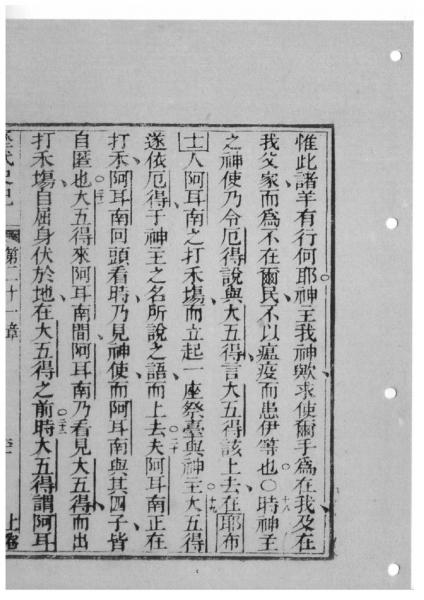 惟此諸羊有行何耶神主我神歟求使爾手為在我及在
我父家而為不在爾民不以瘟疫而患伊等也○時神主
十八
之神使乃令厄得說與大五得言大五得該上去在耶布
十九
士人阿耳南之打禾塲而立起一座祭臺與神主大五得
二十
遂依厄得于神主之名所說之語而上去夫阿耳南正在
打禾阿耳南回頭看時乃見神使而阿耳南與其四子皆
二一
自匿也大五得來阿耳南間阿耳南乃看見大五得而出
二二
打禾塲自屈身伏於地在大五得之前時大五得謂阿耳
歷代史記 第二十一章 上卷